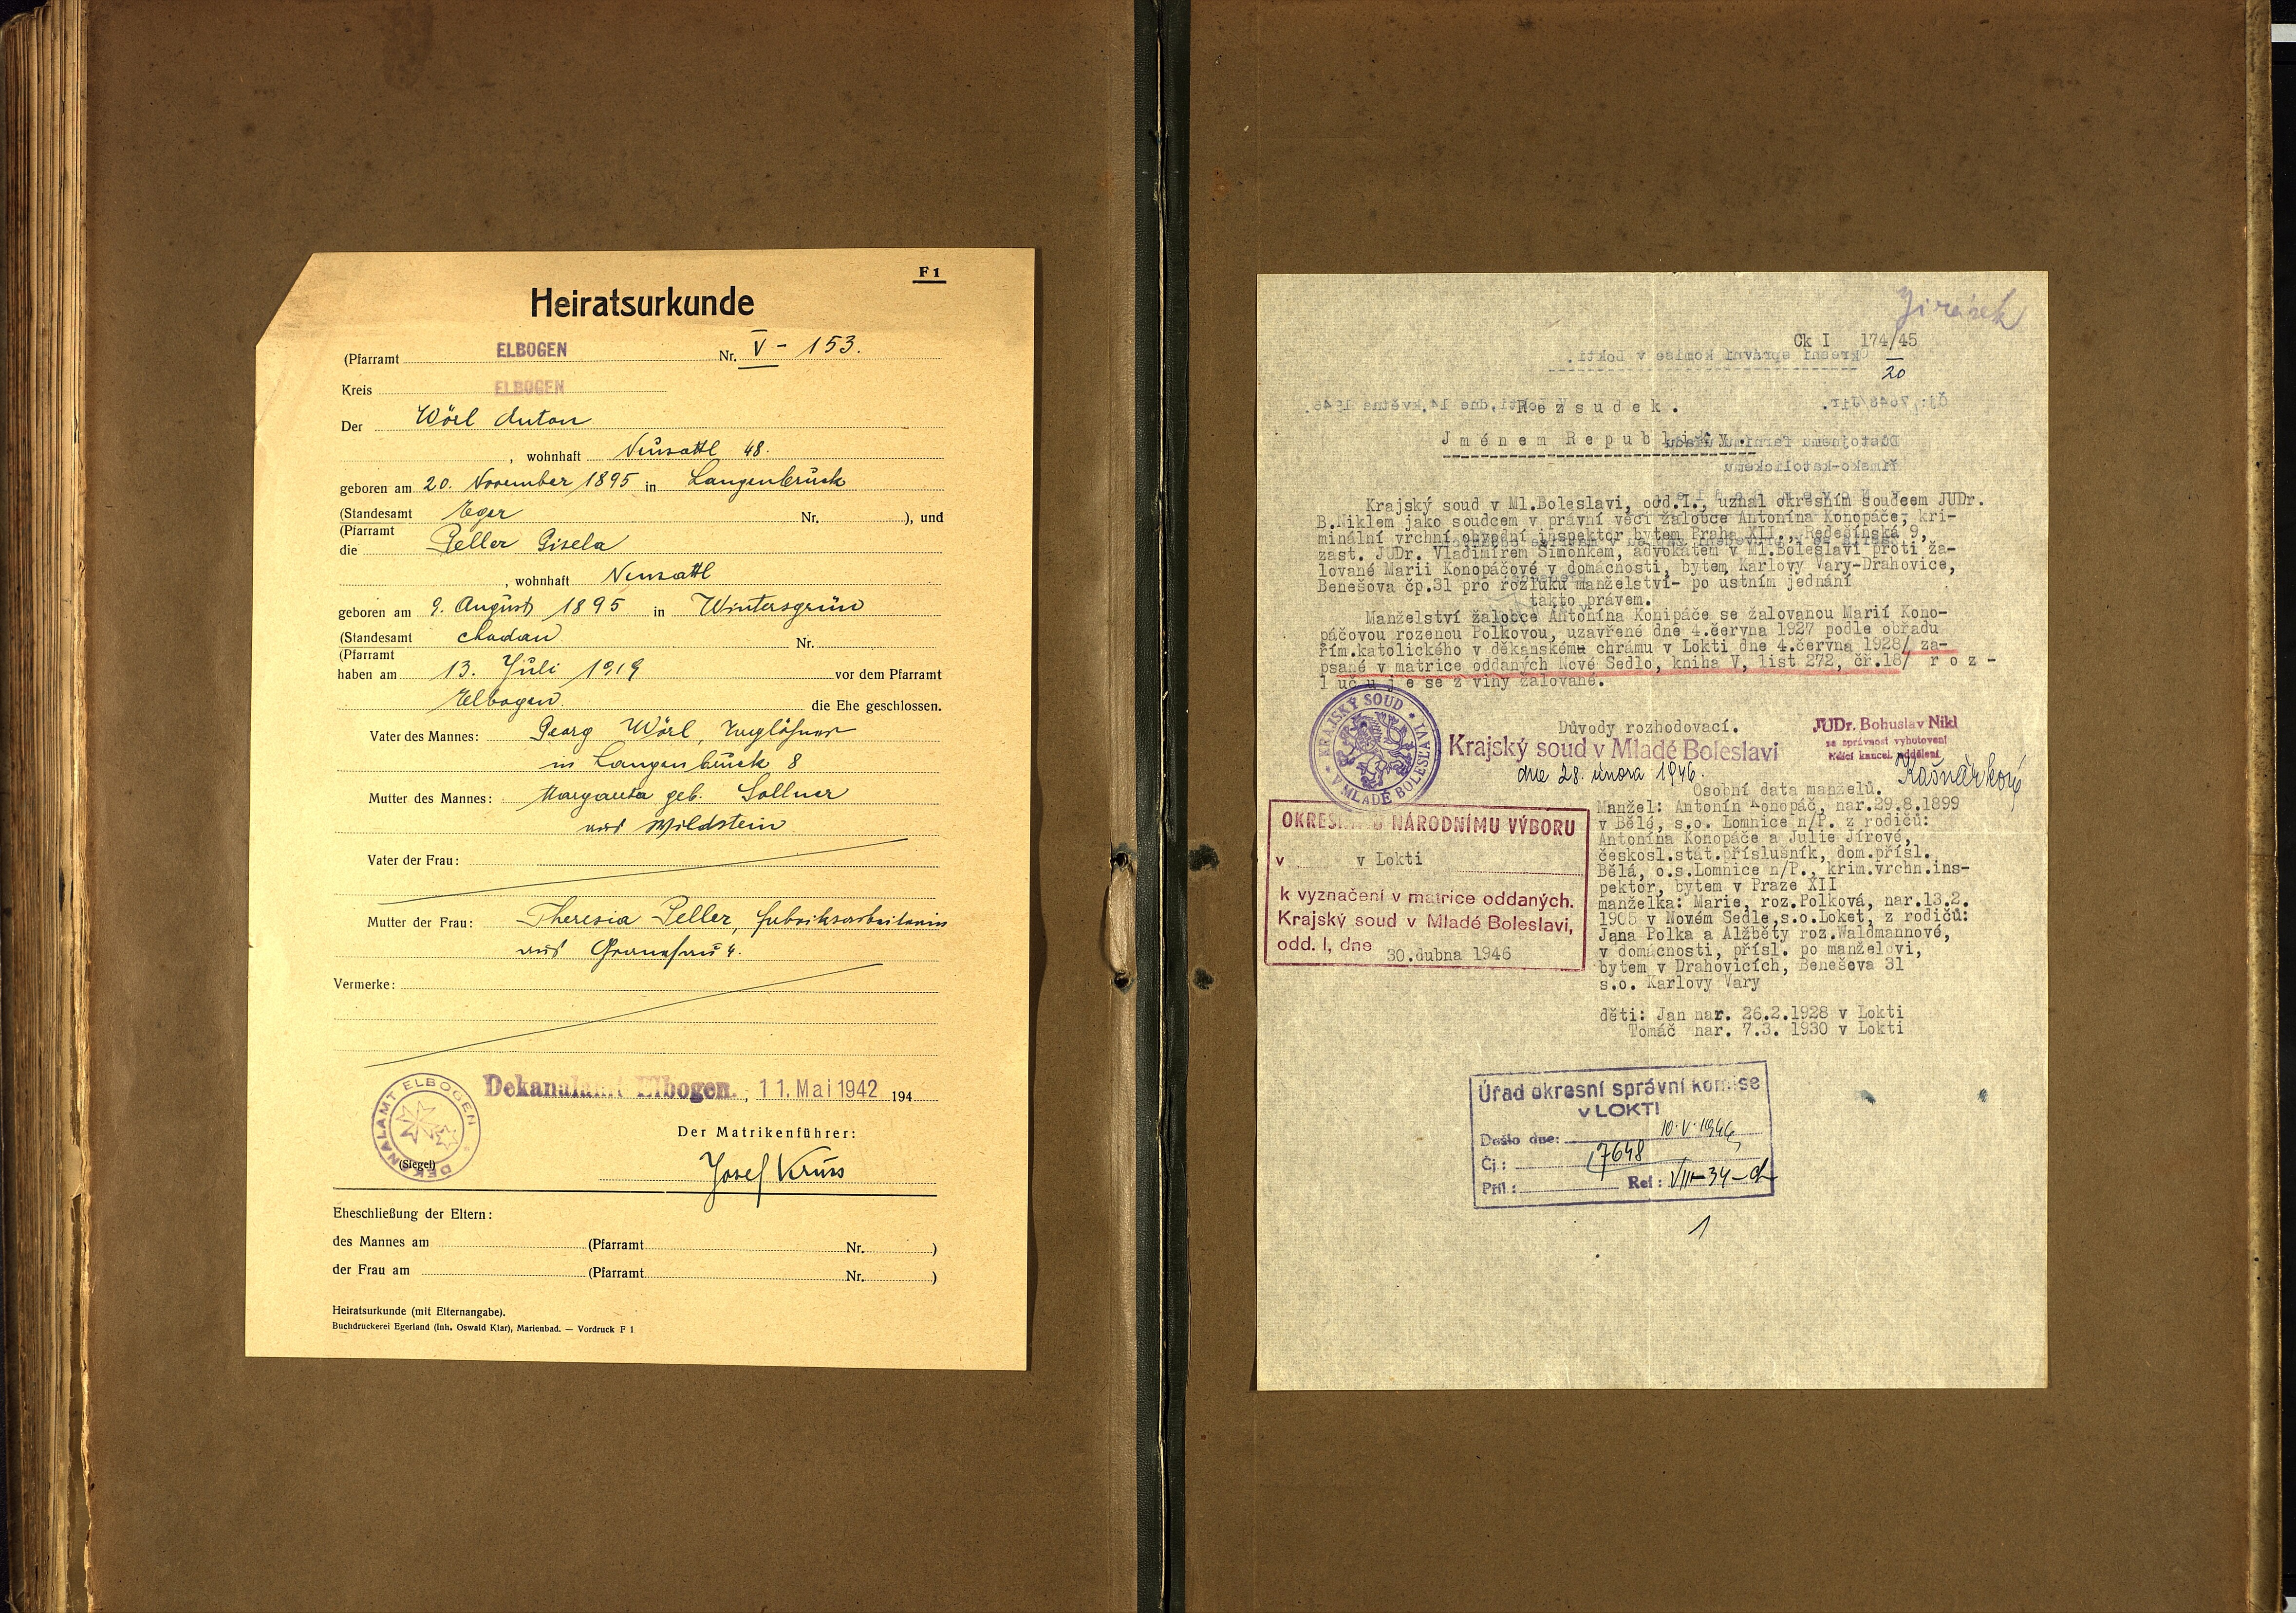 F 1
Heiratsurkunde
(Pfarramt ELBOGEN Nr. V - 153.
Kreis ELBOGEN
Der Wörl Anton
, wohnhaft Neusattl 48.
geboren am 20. November 1895 in Langenbrück
(Standesamt Eger Nr. ), und
(Pfarramt
die Peller Gisela
, wohnhaft Neusattl
geboren am 9. August 1895 in Wintersgrün
(Standesamt Chodau Nr.
(Pfarramt
haben am 13. Juli 1919 vor dem Pfarramt
Elbogen die Ehe geschlossen.
Vater des Mannes: Georg Wörl,
in Langenbrück 8
Mutter des Mannes: Margareta geb. Sollner
aus Wildstein
Vater der Frau:
Mutter der Frau: Theresia Peller, Fabriksarbeiterin
aus
Vermerke:
DEKANALAMT ELBOGEN
Dekanalamt Elbogen. , 11. Mai 1942 194
Der Matrikenführer:
(Siegel)
Josef Kruss
Eheschließung der Eltern:
des Mannes am (Pfarramt Nr. )
der Frau am (Pfarramt Nr. )
Heiratsurkunde (mit Elternangabe).
Buchdruckerei Egerland (Inh. Oswald Klar), Marienbad. — Vordruck F 1
Jirásek
Ck I 174/45
20
R o z s u d e k .
J m é n e m R e p u b l i k y .
Krajský soud v Ml.Boleslavi, odd.I., uznal okresním soudcem JUDr.
B.Niklem jako soudcem v právní věci žalobce Antonína Konopáče, kri-
minální vrchní obvodní inspektor bytem Praha XII., Ředešínská 9,
zast. JUDr. Vladimírem Šimonkem, advokátem v Ml.Boleslavi proti ža-
lované Marii Konopáčové v domácnosti, bytem Karlovy Vary-Drahovice,
Benešova čp.31 pro rozluku manželství- po ústním jednání
takto právem.
Manželství žalobce Antonína Konipáče se žalovanou Marií Kono-
páčovou rozenou Polkovou, uzavřené dne 4.června 1927 podle obřadu
řím.katolického v děkanském chrámu v Lokti dne 4.června 1928/ za-
psané v matrice oddaných Nové Sedlo, kniha V, list 272, čř.18/ r o z -
l u č u j e se z viny žalované.
KRAJSKÝ SOUD V MLADÉ BOLESLAVI
Důvody rozhodovací.
Krajský soud v Mladé Boleslavi
dne 28. února 1946.
JUDr. Bohuslav Nikl
za správnost vyhotovení
řídící kancel. oddělení
Kašnárková
Osobní data manželů.
Manžel: Antonín Konopáč, nar.29.8.1899
v Bělé, s.o. Lomnice n/P. z rodičů:
Antonína Konopáče a Julie Jírové,
českosl.stát.příslušník, dom.přísl.
Bělá, o.s.Lomnice n/P., krim.vrchn.ins-
pektor, bytem v Praze XII
manželka: Marie, roz.Polková, nar.13.2.
1905 v Novém Sedle,s.o.Loket, z rodičů:
Jana Polka a Alžběty roz.Waldmannové,
v domácnosti, přísl. po manželovi,
bytem v Drahovicích, Beneševa 31
s.o. Karlovy Vary
děti: Jan nar. 26.2.1928 v Lokti
Tomáč nar. 7.3. 1930 v Lokti
OKRESNÍMU NÁRODNÍMU VÝBORU
v v Lokti
k vyznačení v matrice oddaných.
Krajský soud v Mladé Boleslavi,
odd. I, dne 30.dubna 1946
Úřad okresní správní komise
v LOKTI
Došlo dne: 10.V.1946
Čj.: 7648
Příl.: Ref: VIII-34-d
1